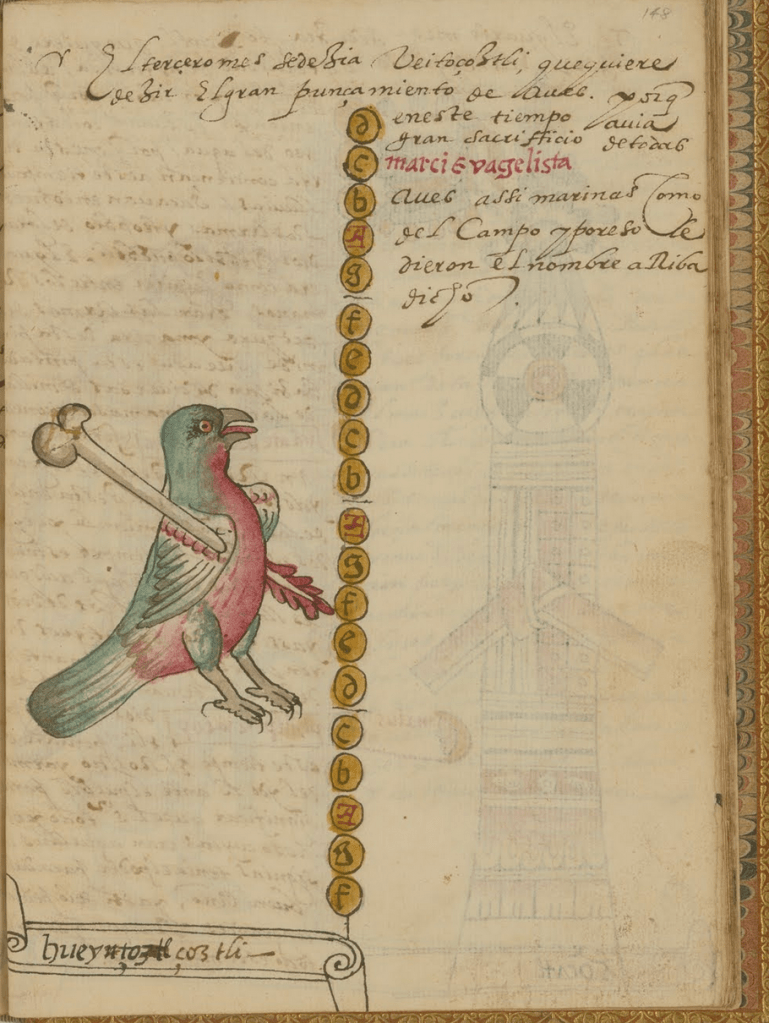 148
El terçero mes sedezia Veitoçoztli, que quiere
dezir El gran punçamiento de Aues. y porq
en este tiempo avia
gran sacrifficio de todas
marci Evagelista
Aues assi marinas Como
del Campo y por eso le
dieron el nombre a Riba
dicho.
d
c
b
A
g
f
e
d
c
b
A
g
f
e
d
c
b
A
g
f
hueyntoztl çoztli